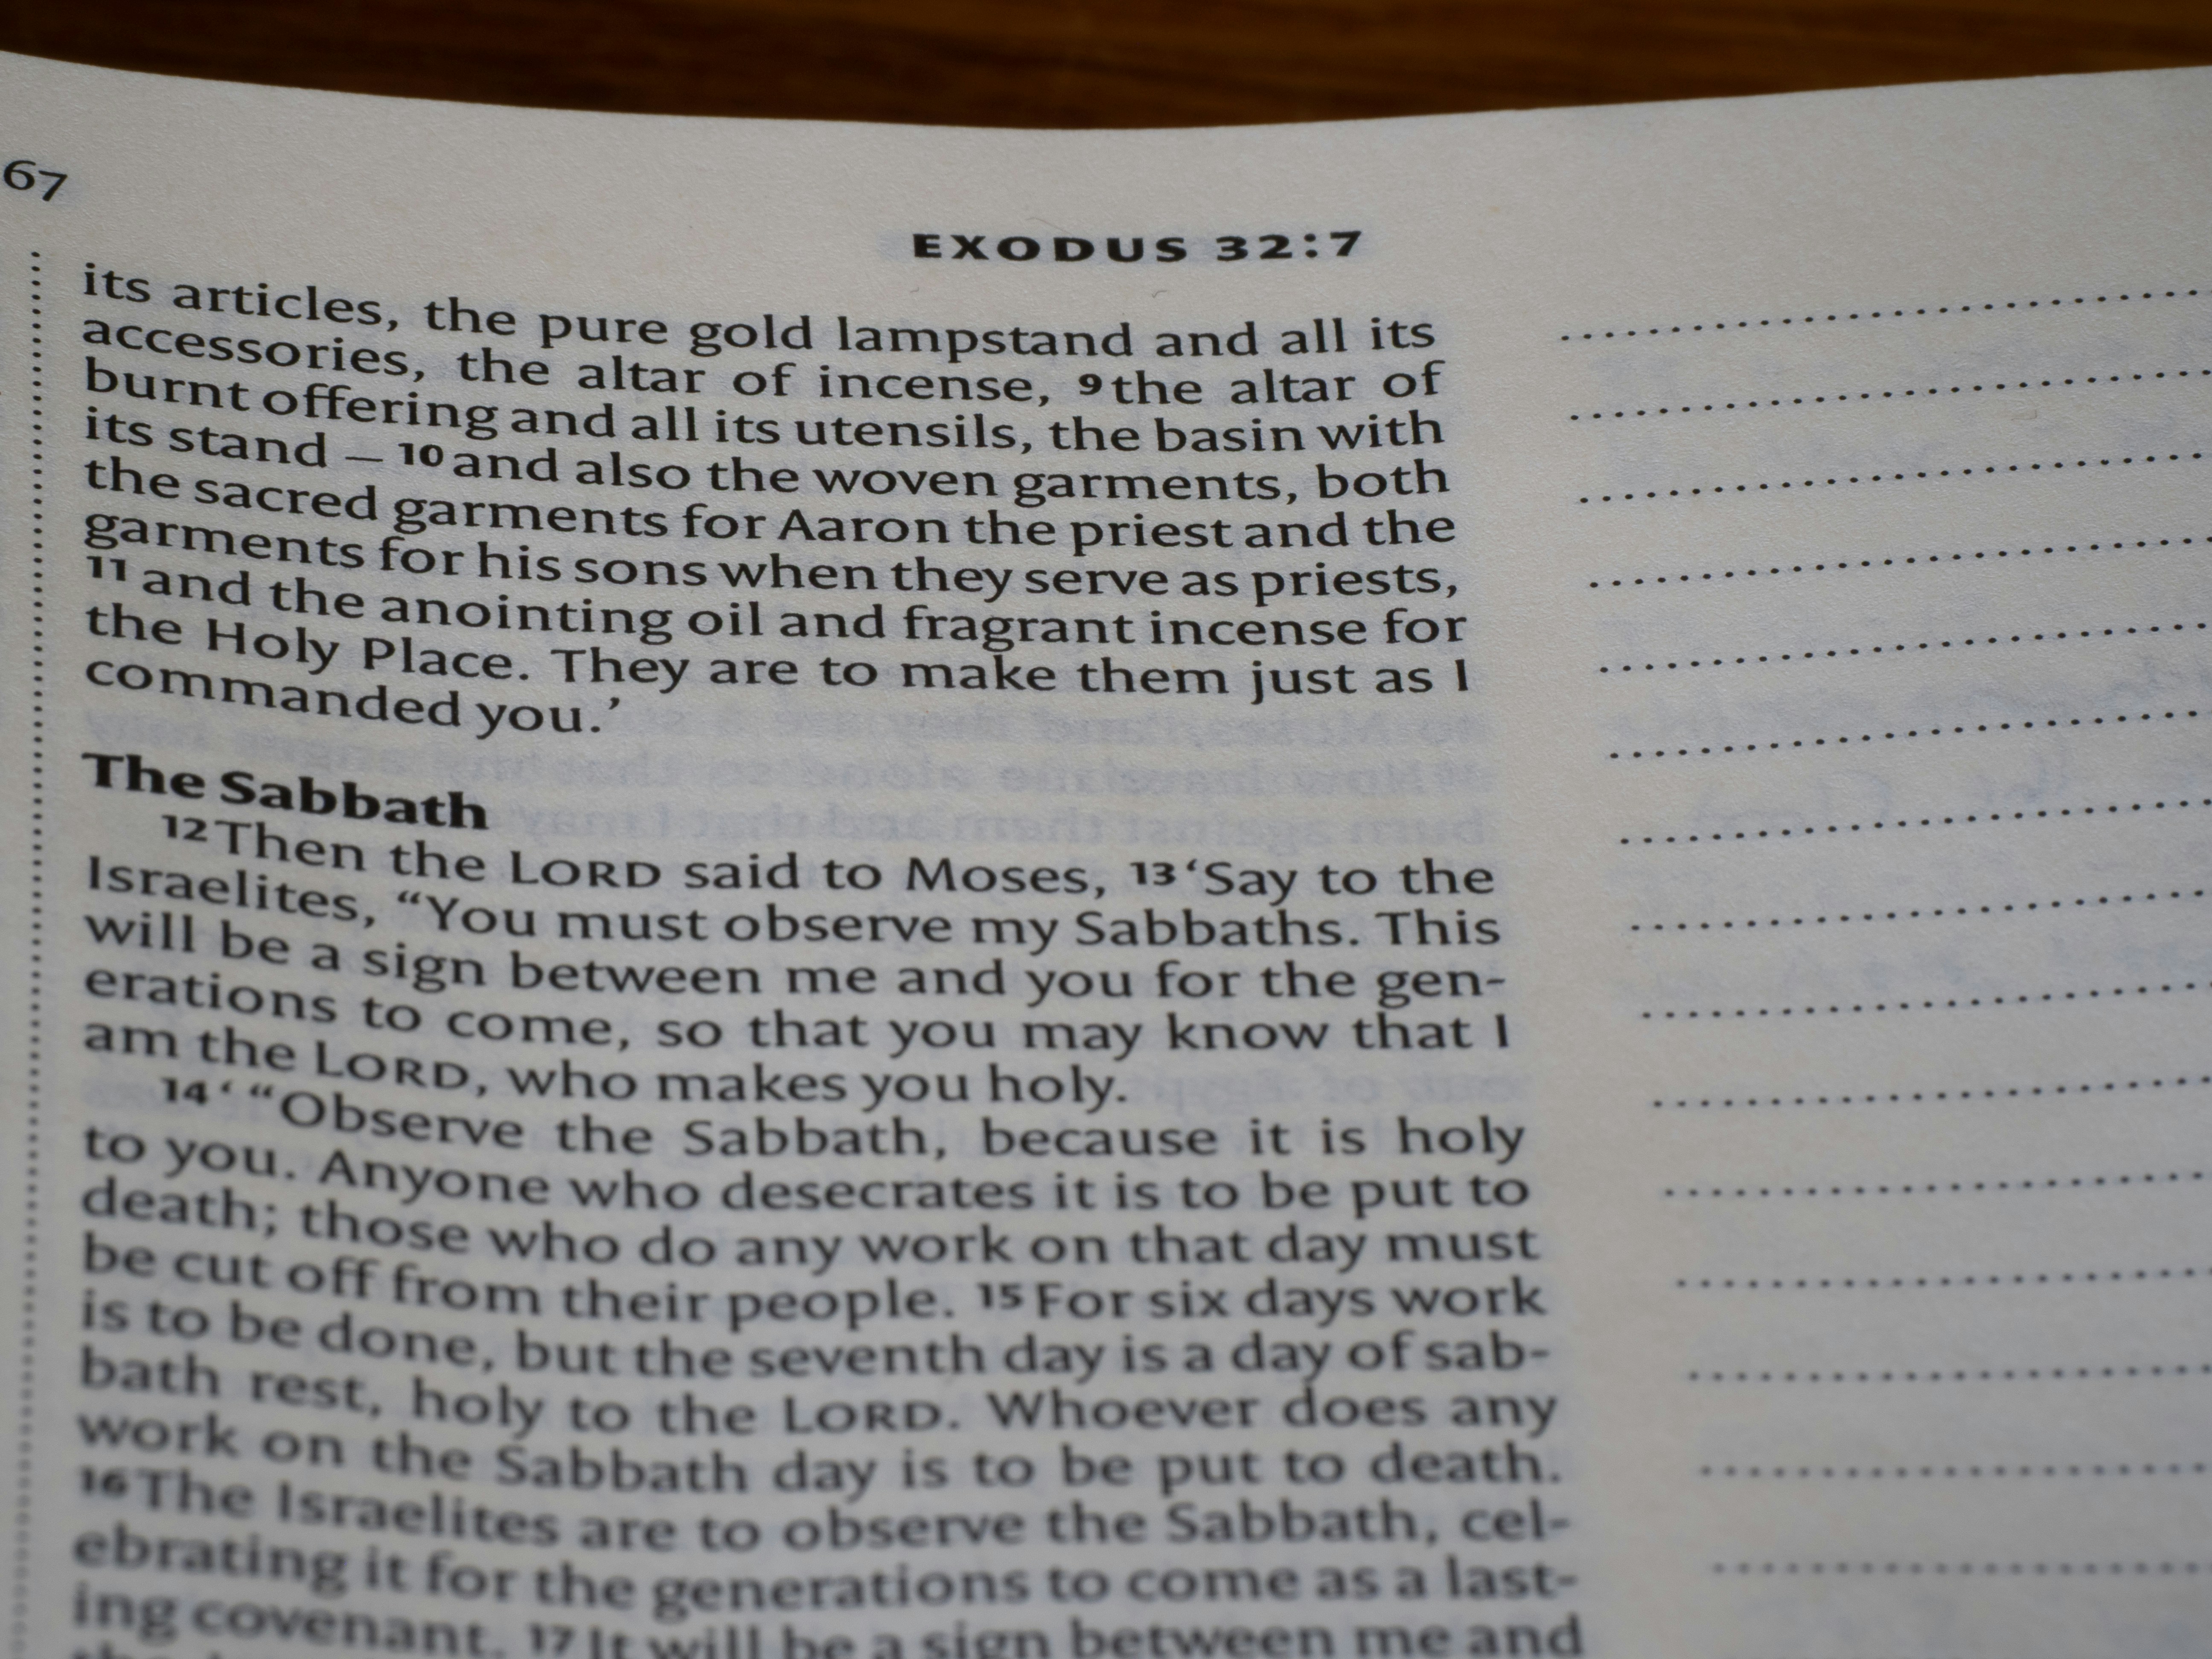 67
EXODUS 32:7
its articles, the pure gold lampstand and all its
accessories, the altar of incense, 9 the altar of
burnt offering and all its utensils, the basin with
its stand – 10 and also the woven garments, both
the sacred garments for Aaron the priest and the
garments for his sons when they serve as priests,
11 and the anointing oil and fragrant incense for
the Holy Place. They are to make them just as I
commanded you.’
The Sabbath
12 Then the LORD said to Moses, 13 ‘Say to the
Israelites, “You must observe my Sabbaths. This
will be a sign between me and you for the gen-
erations to come, so that you may know that I
am the LORD, who makes you holy.
14 ‘ “Observe the Sabbath, because it is holy
to you. Anyone who desecrates it is to be put to
death; those who do any work on that day must
be cut off from their people. 15 For six days work
is to be done, but the seventh day is a day of sab-
bath rest, holy to the LORD. Whoever does any
work on the Sabbath day is to be put to death.
16 The Israelites are to observe the Sabbath, cel-
ebrating it for the generations to come as a last-
ing covenant. 17 It will be a sign between me and